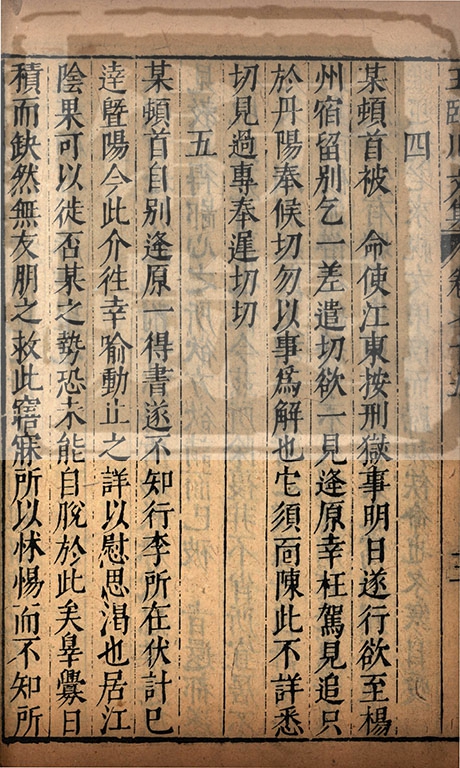 王臨川文集 卷七十五 三
四
某頓首被 命使江東按刑獄事明日遂行欲至楊
州宿留別乞一差遣切欲一見逢原幸枉駕見追只
於丹陽奉候切勿以事爲解也它須面陳此不詳悉
切見過專奉遲切切
五
某頓首自別逢原一得書遂不知行李所在伏計已
達暨陽今此介往幸喻動止之詳以慰思渴也居江
陰果可以徙否某之勢恐未能自脫於此矣辠釁日
積而缺然無友朋之救此寤寐所以怵惕而不知所